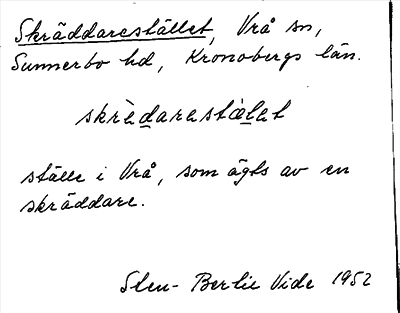 Skräddarestället, Vrå sn,
Sunnerbo hd, Kronobergs län.
skrèdarestàlet
ställe i Vrå, som ägts av en
skräddare.
Sten-Bertil Vide 1952